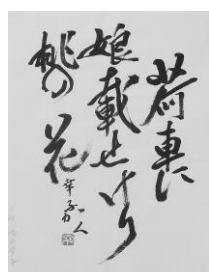 荷車に
娘載せけり
桃の花